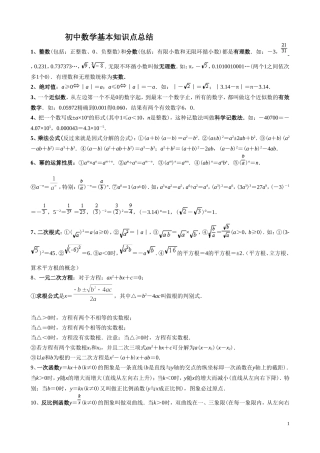 初中数学基本知识点总结
1、整数(包括：正整数、0、负整数)和分数(包括：有限小数和无限环循小数)都是有理数．如：－3，21/31，
0.231，0.737373…，
无限不环循小数叫做无理数．如：π，－
，0.1010010001…(两个1之间依次
多1个0)．有理数和无理数统称为实数．
2、绝对值：a≥0 丨a丨＝a；a≤0 丨a丨＝－a．如：丨－
丨＝
；丨3.14－π丨＝π－3.14．
3、一个近似数，从左边笫一个不是0的数字起，到最末一个数字止，所有的数字，都叫做这个近似数的有效
数字．如：0.05972精确到0.001得0.060，结果有两个有效数字6，0．
4、把一个数写成±a×10ⁿ的形式(其中1≤a＜10，n是整数)，这种记数法叫做科学记数法．如：－40700＝－
4.07×10⁵，0.000043＝4.3×10⁻⁵．
5、乘法公式(反过来就是因式分解的公式)：①(a＋b)(a－b)＝a²－b²．②(a±b)²＝a²±2ab＋b²．③(a＋b)(a²
－ab＋b²)＝a³＋b³．④(a－b)(a²＋ab＋b²)＝a³－b³；a²＋b²＝(a＋b)²－2ab，(a－b)²＝(a＋b)²－4ab．
6、幂的运算性质：①aᵐ×aⁿ＝aᵐ⁺ⁿ．②aᵐ÷aⁿ＝aᵐ⁻ⁿ．③(aᵐ)ⁿ＝aᵐⁿ．④(ab)ⁿ＝aⁿbⁿ．⑤(a/b)ⁿ＝n．
⑥a⁻ⁿ＝1/aⁿ，特别：()⁻ⁿ＝()ⁿ．⑦a⁰＝1(a≠0)．如：a³×a²＝a⁵，a⁶÷a²＝a⁴，(a³)²＝a⁶，(3a³)³＝27a⁹，(－3)⁻¹
＝－
，5⁻²＝
＝
，()⁻²＝()²＝
，(－3.14)º＝1，(
－
)º＝1．
7、二次根式：①(√a)²＝a(a≥0)，②
＝丨a丨，③
＝
×
，④
＝
(a＞0，b≥0)．如：①(3
√5)²＝45．②
＝6．③a＜0时，
＝－a
．④
的平方根＝4的平方根＝±2．(平方根、立方根、
算术平方根的概念)
8、一元二次方程：对于方程：ax²＋bx＋c＝0：
①求根公式是x＝(−b±√(b²−4ac))/2a，其中△＝b²－4ac叫做根的判别式．
当△＞0时，方程有两个不相等的实数根；
当△＝0时，方程有两个相等的实数根；
当△＜0时，方程没有实数根．注意：当△≥0时，方程有实数根．
②若方程有两个实数根x₁和x₂，并且二次三项式ax²＋bx＋c可分解为a(x－x₁)(x－x₂)．
③以a和b为根的一元二次方程是x²－(a＋b)x＋ab＝0．
9、一次函数y＝kx＋b(k≠0)的图象是一条直线(b是直线与y轴的交点的纵坐标即一次函数在y轴上的截距)．
当k＞0时，y随x的增大而增大(直线从左向右上升)；当k＜0时，y随x的增大而减小(直线从左向右下降)．特
别：当b＝0时，y＝kx(k≠0)又叫做正比例函数(y与x成正比例)，图象必过原点．
10、反比例函数y＝k/x(k≠0)的图象叫做双曲线．当k＞0时，双曲线在一、三象限(在每一象限内，从左向右
1